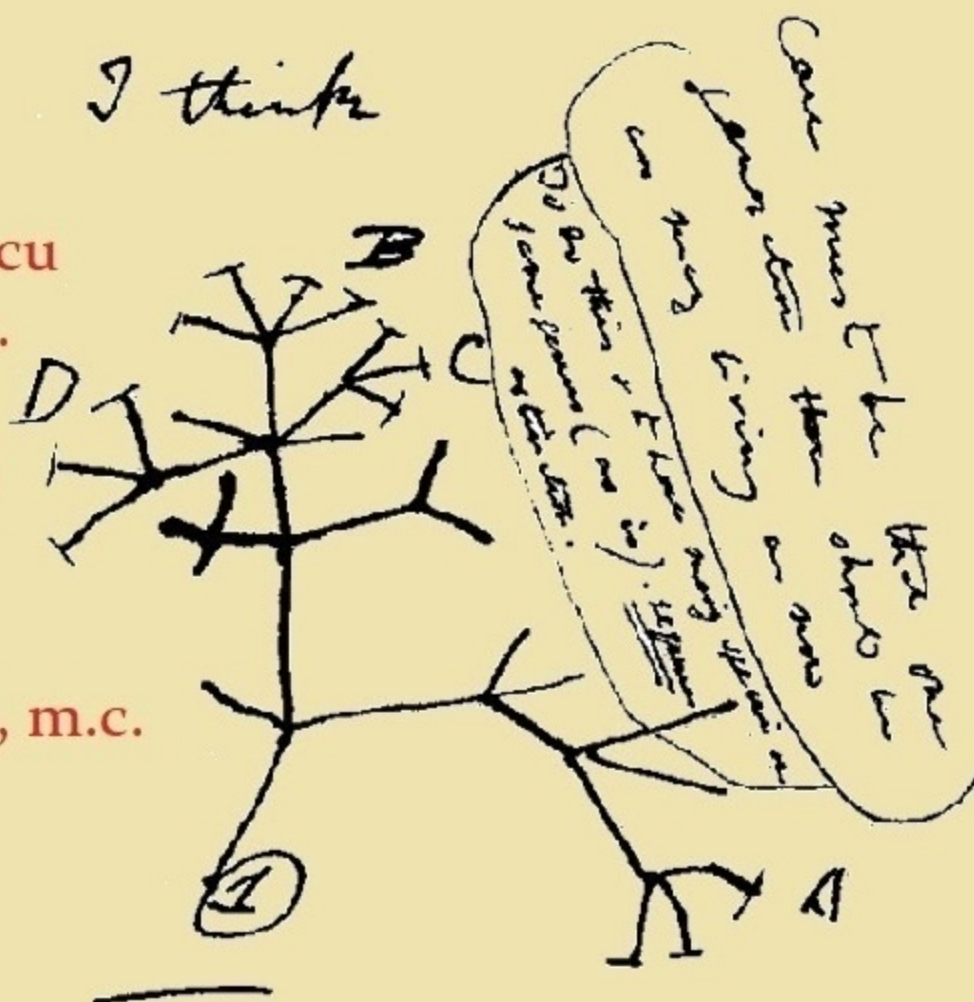 I think
cu
.
B
D
C
, m.c.
1
A
Case must be that one
generation then should be
as many living as now
To do this & to have many species in
same genus (as is). requires
extinction.